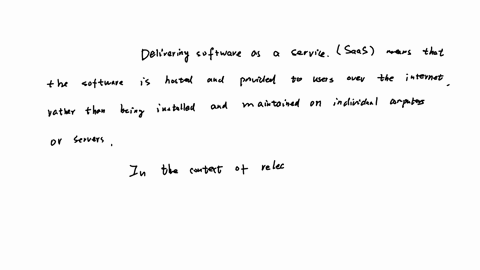 Delivering software as a service. (SaaS) means that
the software is hosted and provided to users over the internet,
rather than being installed and maintained on individual computers
or servers.
In the context of relea